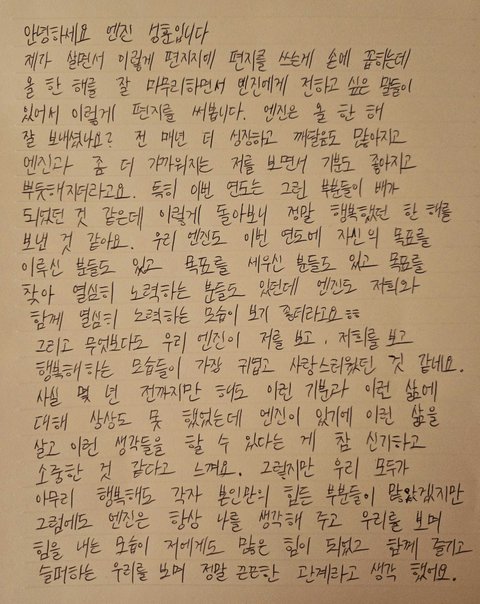 안녕하세요 엔진 성훈입니다
제가 살면서 이렇게 편지지에 편지를 쓰는게 손에 꼽히는데
올 한 해를 잘 마무리하면서 엔진에게 전하고 싶은 말들이
있어서 이렇게 편지를 써봅니다. 엔진은 올 한 해
잘 보내셨나요? 전 매년 더 성장하고 깨달음도 많아지고
엔진과 좀 더 가까워지는 저를 보면서 기분도 좋아지고
뿌듯해지더라고요. 특히 이번 연도는 그런 부분들이 배가
되었던 것 같은데 이렇게 돌아보니 정말 행복했던 한 해를
보낸 것 같아요. 우리 엔진도 이번 연도에 자신의 목표를
이루신 분들도 있고 목표를 세우신 분들도 있고 목표를
찾아 열심히 노력하는 분들도 있던데 엔진도 저희와
함께 열심히 노력하는 모습이 보기 좋더라고요 ㅎㅎ
그리고 무엇보다도 우리 엔진이 저를 보고, 저희를 보고
행복해하는 모습들이 가장 귀엽고 사랑스러웠던 것 같네요.
사실 몇 년 전까지만 해도 이런 기분과 이런 삶에
대해 상상도 못 했었는데 엔진이 있기에 이런 삶을
살고 이런 생각들을 할 수 있다는 게 참 신기하고
소중한 것 같다고 느껴요. 그렇지만 우리 모두가
아무리 행복해도 각자 본인만의 힘든 부분들이 많았겠지만
그럼에도 엔진은 항상 나를 생각해 주고 우리를 보며
힘을 내는 모습이 저에게도 많은 힘이 되었고 함께 즐기고
슬퍼하는 우리를 보며 정말 끈끈한 관계라고 생각 했어요.